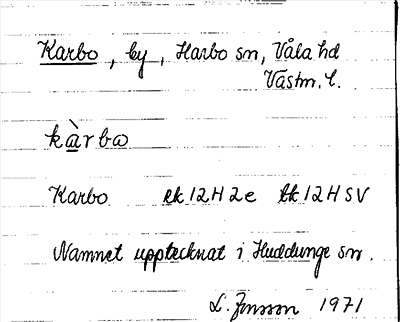 Karbo, by, Harbo sn, Våla hd
Västm. l.
kàrbω
Karbo ek 12H2e tk 12H SV
Namnet upptecknat i Huddunge sn.
L. Jonsson 1971